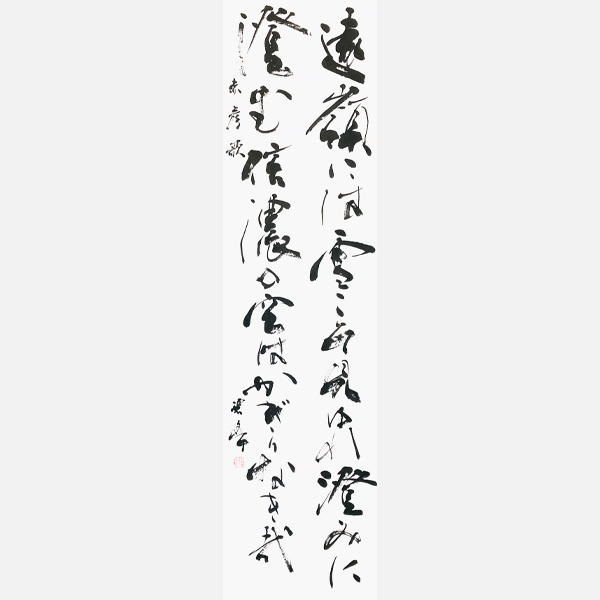 遠嶺には雪こそ見ゆれ澄みに
澄む信濃の空はかぎりなき哉
赤彦歌